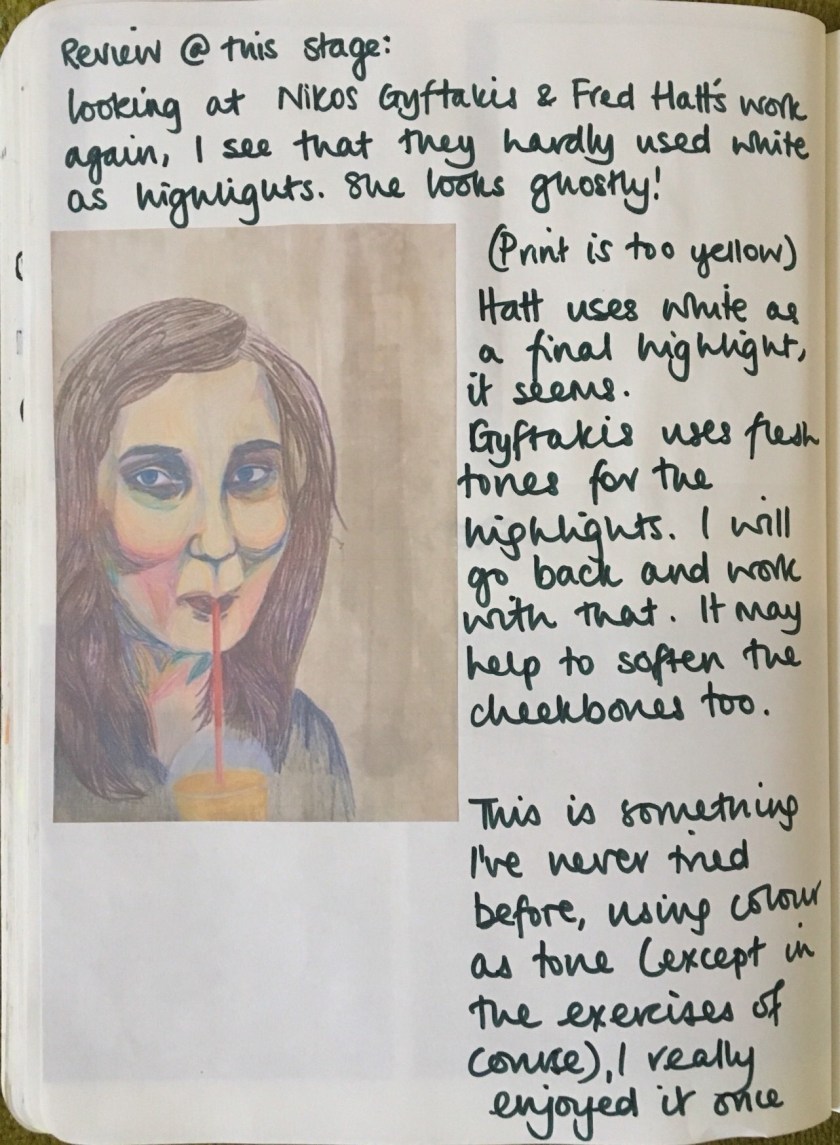 Review @ this stage:
looking at Nikos Gyftakis & Fred Hatt's work
again, I see that they hardly used white
as highlights. She looks ghostly!
(Print is too yellow)
Hatt uses white as
a final highlight,
it seems.
Gyftakis uses flesh
tones for the
highlights. I will
go back and work
with that. It may
help to soften the
cheekbones too.
This is something
I've never tried
before, using colour
as tone (except in
the exercises of
course), I really
enjoyed it once